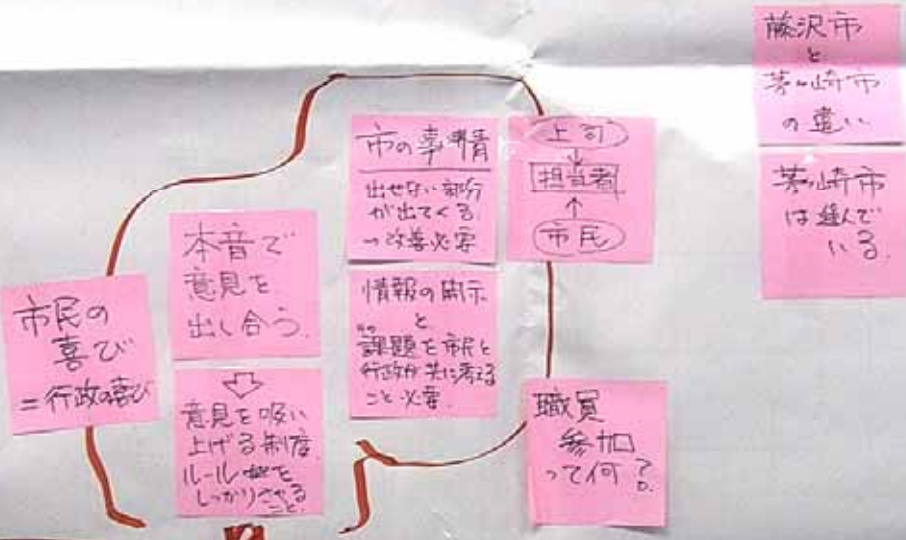 市民の
喜び
=行政の喜び
本音で
意見を
出し合う.
意見を吸い
上げる制度
ルールをしっかりさせること.
市の事情
出せない部分
が出てくる
→改善必要
情報の開示
と
課題を市民と
行政が共に考える
こと必要.
上司
担当者
市民
職員
参加
って何?
藤沢市
と
茅ヶ崎市
の違い
茅ヶ崎市
は進んで
いる.